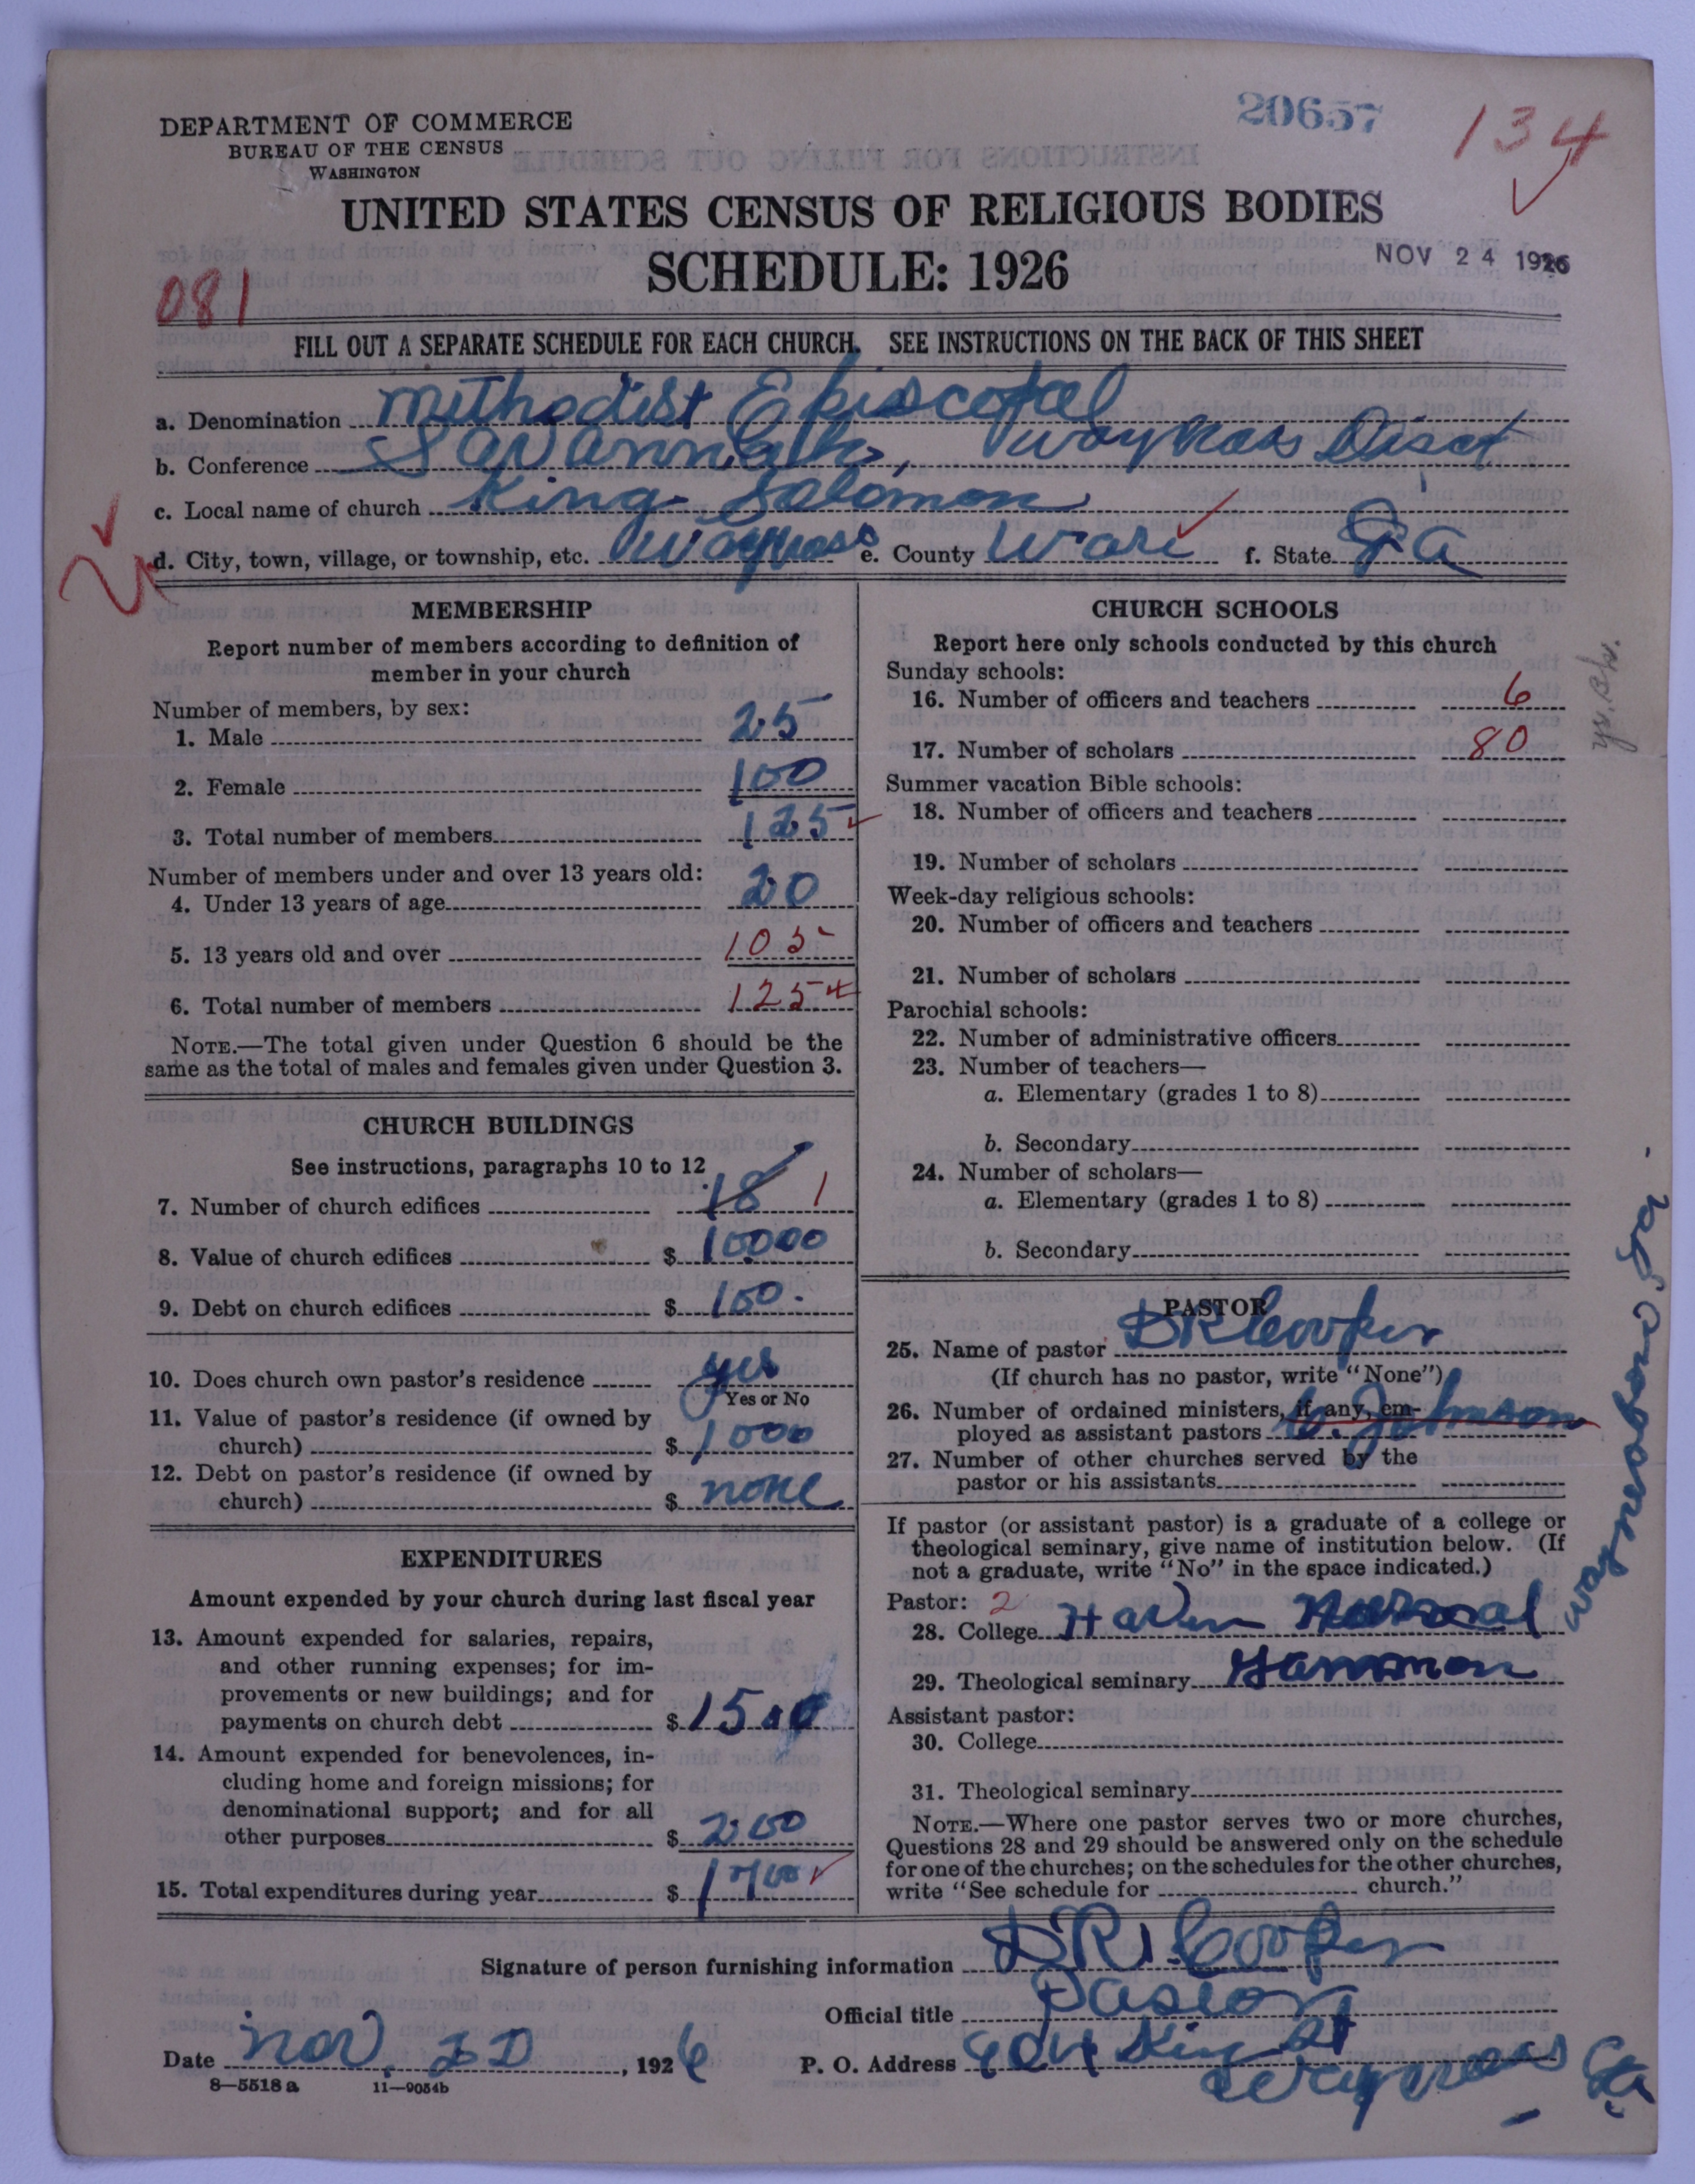 20657
134
DEPARTMENT OF COMMERCE
BUREAU OF THE CENSUS
WASHINGTON
UNITED STATES CENSUS OF RELIGIOUS BODIES
SCHEDULE: 1926
NOV 24 1926
081
FILL OUT A SEPARATE SCHEDULE FOR EACH CHURCH. SEE INSTRUCTIONS ON THE BACK OF THIS SHEET
a. Denomination Methodist Episcopal
b. Conference Savannah, Waykross Disct
c. Local name of church King Solomon
d. City, town, village, or township, etc. Waycross e. County Ware f. State Ga
MEMBERSHIP
Report number of members according to definition of
member in your church
Number of members, by sex:
1. Male 25
2. Female 100
3. Total number of members 125
Number of members under and over 13 years old:
4. Under 13 years of age 20
5. 13 years old and over 105
6. Total number of members 125
NOTE.—The total given under Question 6 should be the
same as the total of males and females given under Question 3.
CHURCH BUILDINGS
See instructions, paragraphs 10 to 12
7. Number of church edifices 18 1
8. Value of church edifices $ 10000
9. Debt on church edifices $ 100.
10. Does church own pastor's residence yes
Yes or No
11. Value of pastor's residence (if owned by
church) $ 1000
12. Debt on pastor's residence (if owned by
church) $ none
EXPENDITURES
Amount expended by your church during last fiscal year
13. Amount expended for salaries, repairs,
and other running expenses; for im-
provements or new buildings; and for
payments on church debt $ 1500
14. Amount expended for benevolences, in-
cluding home and foreign missions; for
denominational support; and for all
other purposes $ 200
15. Total expenditures during year $ 1700
CHURCH SCHOOLS
Report here only schools conducted by this church
Sunday schools:
16. Number of officers and teachers 6
17. Number of scholars 80
Summer vacation Bible schools:
18. Number of officers and teachers
19. Number of scholars
Week-day religious schools:
20. Number of officers and teachers
21. Number of scholars
Parochial schools:
22. Number of administrative officers
23. Number of teachers—
a. Elementary (grades 1 to 8)
b. Secondary
24. Number of scholars—
a. Elementary (grades 1 to 8)
b. Secondary
PASTOR
25. Name of pastor DR Cooper
(If church has no pastor, write "None")
26. Number of ordained ministers, if any, em-
ployed as assistant pastors Johnson
27. Number of other churches served by the
pastor or his assistants
If pastor (or assistant pastor) is a graduate of a college or
theological seminary, give name of institution below. (If
not a graduate, write "No" in the space indicated.)
Pastor: 2
28. College Haven Normal
Waynesboro Ga.
29. Theological seminary Gammon
Assistant pastor:
30. College
31. Theological seminary
NOTE.—Where one pastor serves two or more churches,
Questions 28 and 29 should be answered only on the schedule
for one of the churches; on the schedules for the other churches,
write "See schedule for church."
Signature of person furnishing information DR Cooper
Official title Pastor
Date Nov. 20, 1926 P. O. Address King St
Waycross Ga
8—5518 a 11—9054b